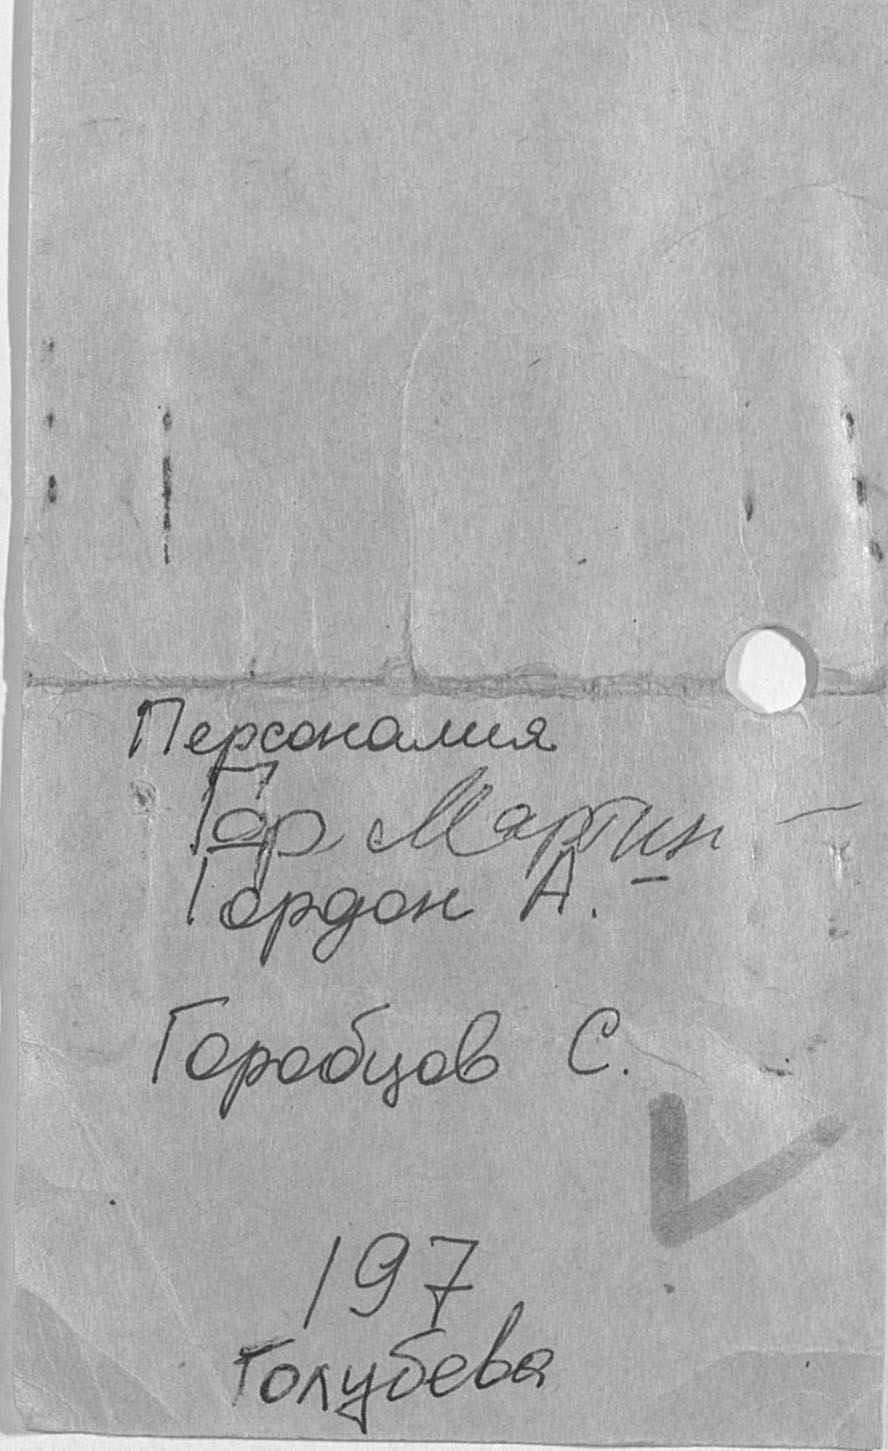 Персоналия
Гор Мартин —
Гордон А. —
Горобцов С.
197
Голубева